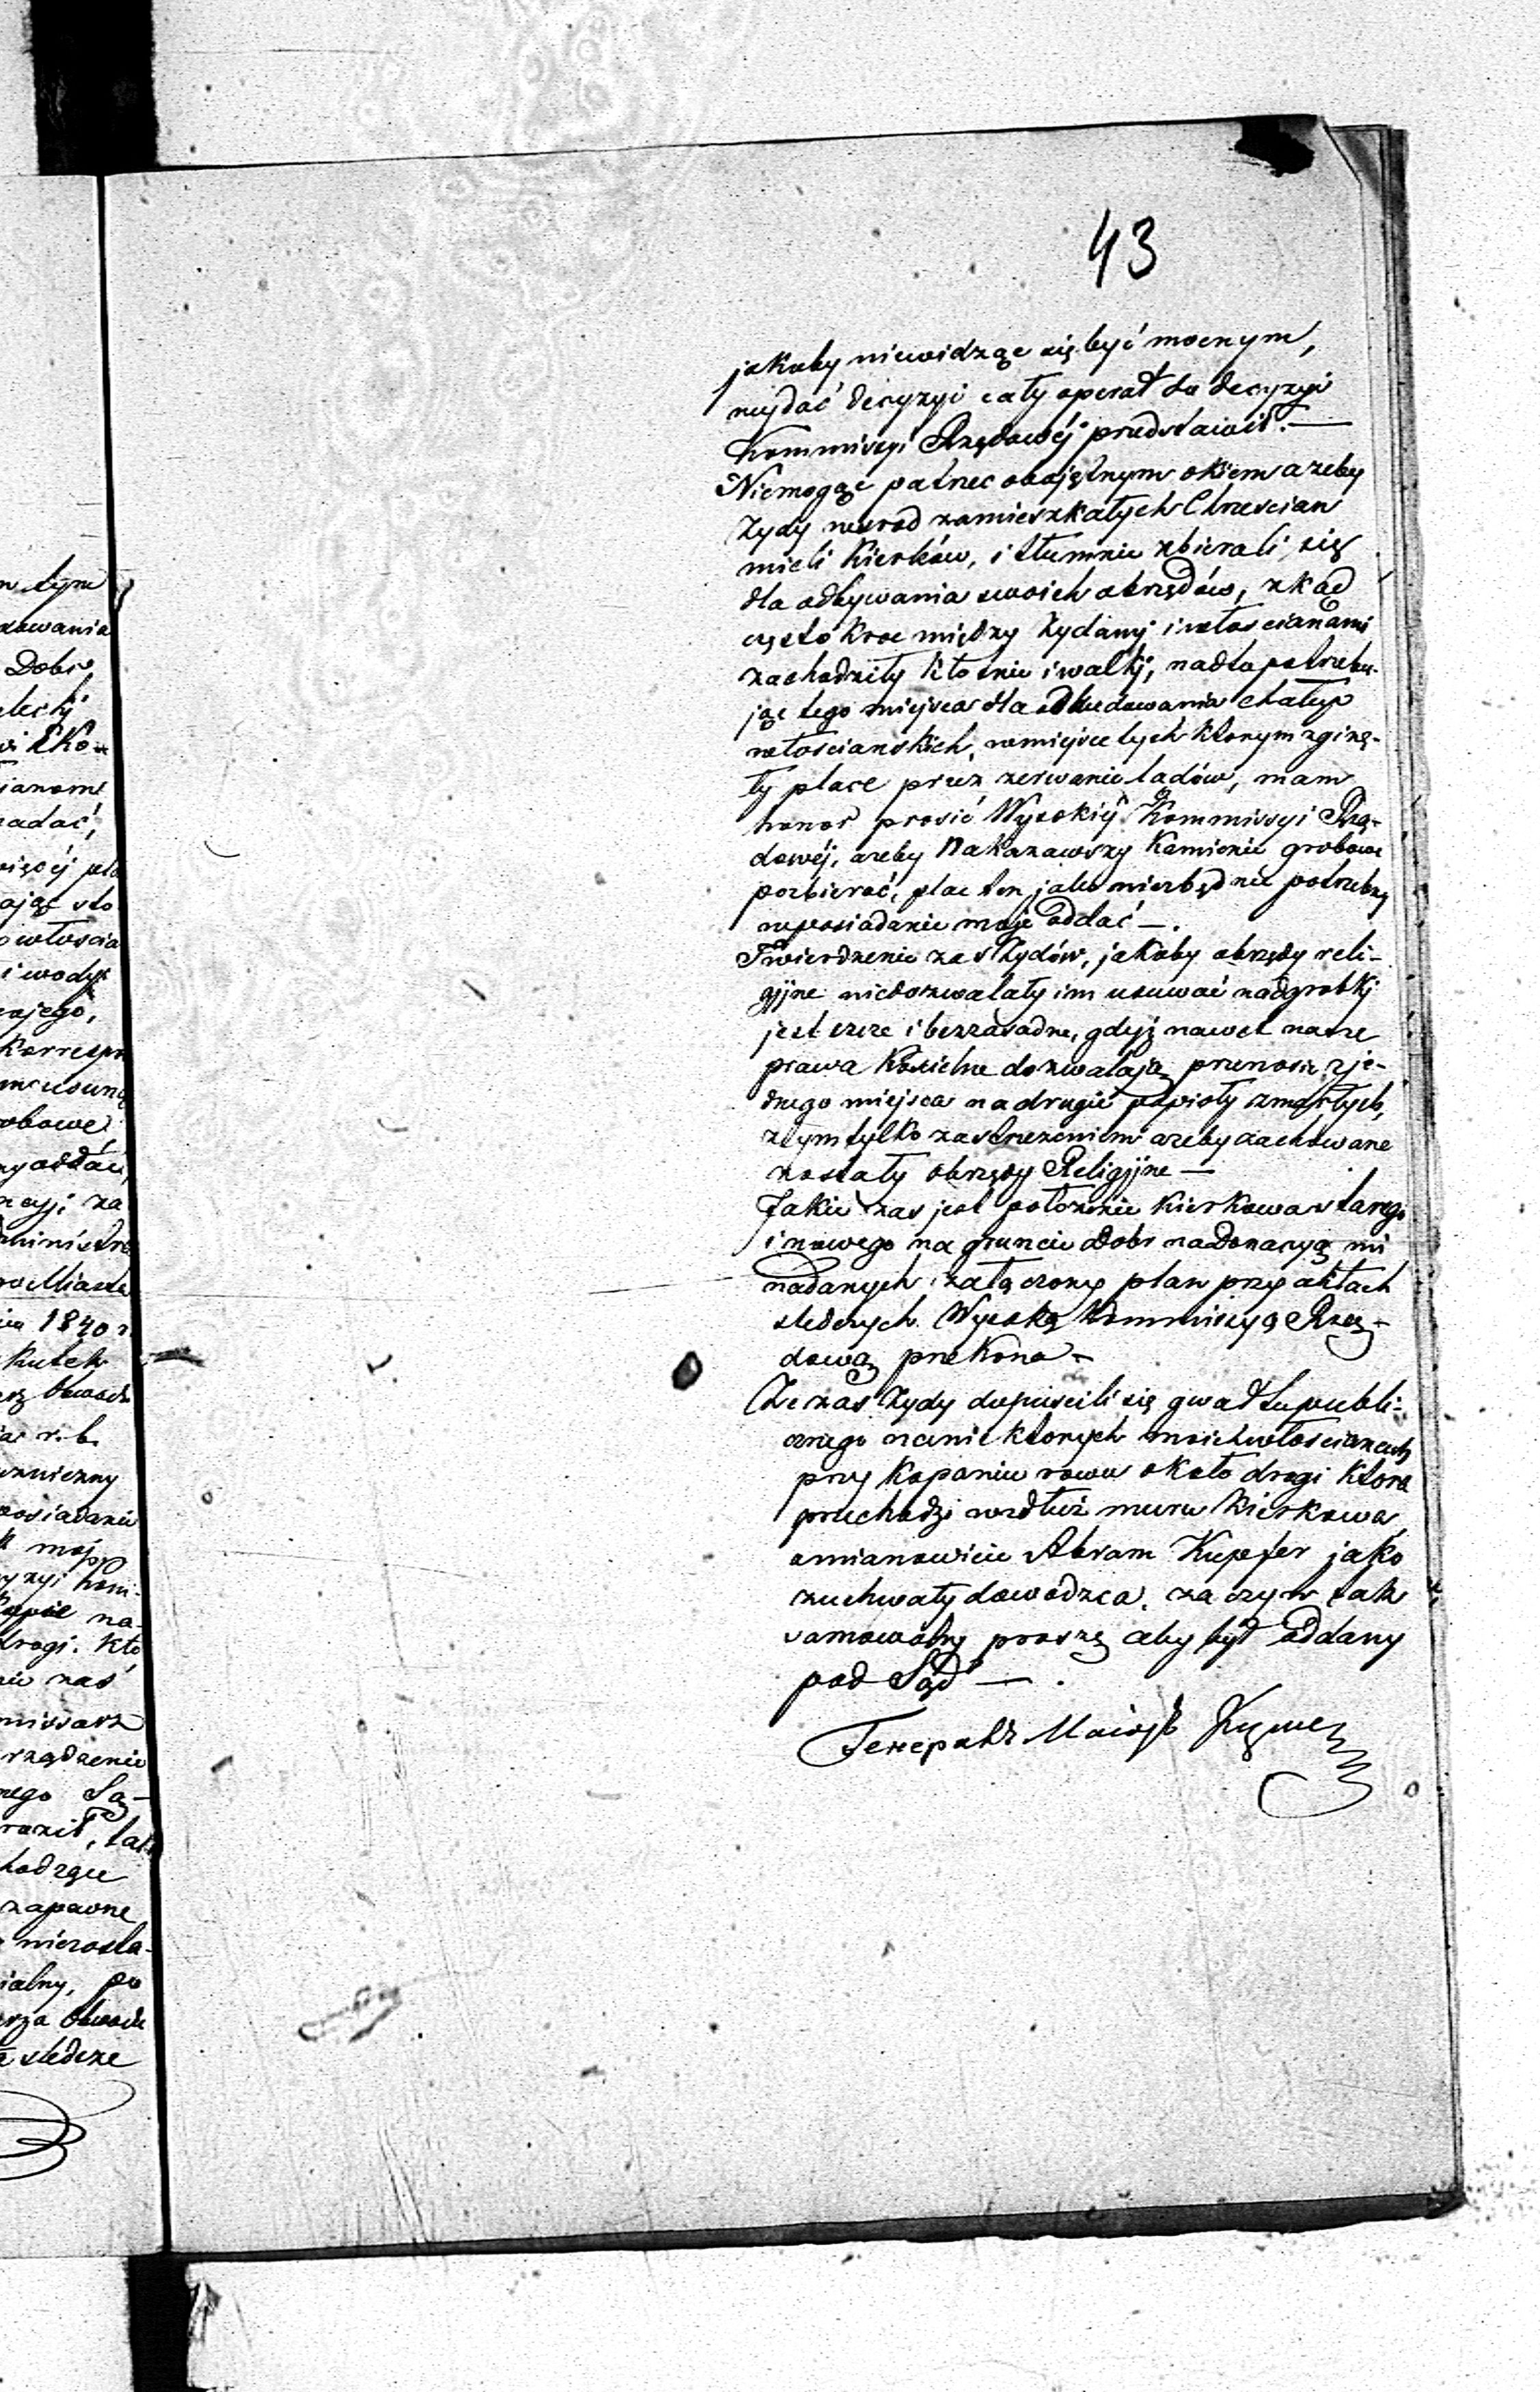 43
jakoby niewidząc się być mocnym,
wydać decyzyi cały operat do decyzyi
Kommissyi Rządowéj przedstawił. —
Niemogąc patrzec obojętnym okiem azeby
Zydy wsrod zamieszkałych Chrzescian
mieli Kierków, i tłumnie zbierali się
dla odbywania swoich obrzędów, zkąd
często kroc między Zydamy i włoscianami
zachodziły kłotnie i walki, nadto potrzebu-
jąc tego miejsca dla odbudowania chałup
włoscianskich, w miejsce tych ktorym zginę-
ły place przez zerwanie lądów, mam
honor prosić Wysokiéj Kommissyi Rzą-
dowéj, azeby Nakazawszy Kamienie grobowe
pozbierać, plac ten jako niezbędnie potrzebny
w posiadanie moje oddać —.
Twierdzenie zas Zydów, jakoby obrzędy reli-
gijne niedozwalały im usuwać nadgrobki
jest czcze i bezzasadne, gdyż nawet nasze
prawa Koscielne dozwalają przenosic z je-
dnego miejsca na drugie popioły zmarłych,
z tym tylko zastrzezeniem azeby zachowane
zostały obrzędy Religijne —
Jakie zas jest połozenie Kierkowa starego
i nowego na gruncie Dobr na Donacyą mi
nadanych, załączony plan przy aktach
sledczych Wysoką Kommissyą Rzą-
dową przekona —
Ze zas Zydy dopuscili się gwałtu publi-
cznego na niektorych moich włoscianach
przy Kopaniu rowu około drogi ktora
przechodzi wzdłuż muru Kierkowa,
a mianowicie Abram Kupfer jako
zuchwały dowodzca, za czyn tak
samowolny proszę aby był oddany
pod Sąd — .
Генералъ Маіоръ
n tym
Dobr
ianami
nadać,
więcéj
i wody
Korrespn
obowe
1840 r.
r. b.
posiadanie
na-
drogi. Kto
nie zas
missarz
rządzenie
nego Są-
zapewne
ialny, po
sledcze